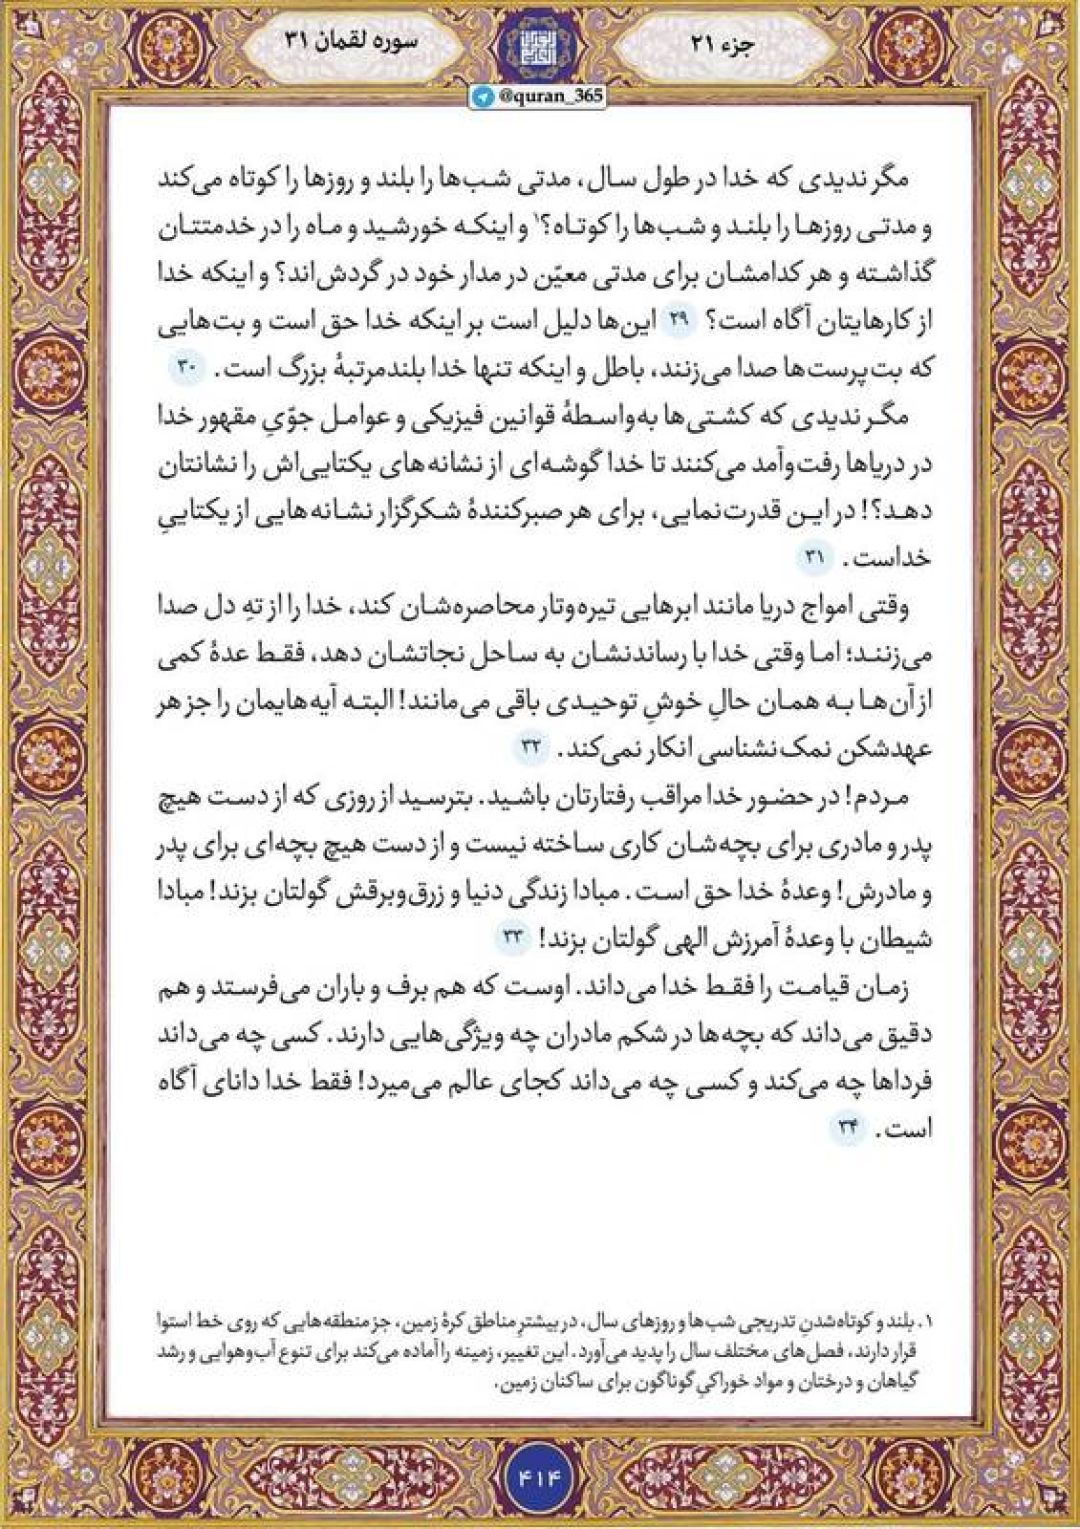 جزء ۲۱
سوره لقمان ۳۱
@quran_365
مگر ندیدی که خدا در طول سال، مدتی شب‌ها را بلند و روزها را کوتاه می‌کند
و مدتی روزها را بلند و شب‌ها را کوتاه؟۱ و اینکه خورشید و ماه را در خدمتتان
گذاشته و هر کدامشان برای مدتی معیّن در مدار خود در گردش‌اند؟ و اینکه خدا
از کارهایتان آگاه است؟ ۲۹ این‌ها دلیل است بر اینکه خدا حق است و بت‌هایی
که بت‌پرست‌ها صدا می‌زنند، باطل و اینکه تنها خدا بلندمرتبهٔ بزرگ است. ۳۰
مگر ندیدی که کشتی‌ها به‌واسطهٔ قوانین فیزیکی و عوامل جوّیِ مقهور خدا
در دریاها رفت‌وآمد می‌کنند تا خدا گوشه‌ای از نشانه‌های یکتایی‌اش را نشانتان
دهد؟! در این قدرت‌نمایی، برای هر صبرکنندهٔ شکرگزار نشانه‌هایی از یکتاییِ
خداست. ۳۱
وقتی امواج دریا مانند ابرهایی تیره‌وتار محاصره‌شان کند، خدا را از تهِ دل صدا
می‌زنند؛ اما وقتی خدا با رساندنشان به ساحل نجاتشان دهد، فقط عدهٔ کمی
از آن‌ها به همان حالِ خوشِ توحیدی باقی می‌مانند! البته آیه‌هایمان را جز هر
عهدشکن نمک‌نشناسی انکار نمی‌کند. ۳۲
مردم! در حضور خدا مراقب رفتارتان باشید. بترسید از روزی که از دست هیچ
پدر و مادری برای بچه‌شان کاری ساخته نیست و از دست هیچ بچه‌ای برای پدر
و مادرش! وعدهٔ خدا حق است. مبادا زندگی دنیا و زرق‌وبرقش گولتان بزند! مبادا
شیطان با وعدهٔ آمرزش الهی گولتان بزند! ۳۳
زمان قیامت را فقط خدا می‌داند. اوست که هم برف و باران می‌فرستد و هم
دقیق می‌داند که بچه‌ها در شکم مادران چه ویژگی‌هایی دارند. کسی چه می‌داند
فرداها چه می‌کند و کسی چه می‌داند کجای عالم می‌میرد! فقط خدا دانای آگاه
است. ۳۴
۱. بلند و کوتاه‌شدنِ تدریجی شب‌ها و روزهای سال، در بیشترِ مناطق کرهٔ زمین، جز منطقه‌هایی که روی خط استوا
قرار دارند، فصل‌های مختلف سال را پدید می‌آورد. این تغییر، زمینه را آماده می‌کند برای تنوع آب‌وهوایی و رشد
گیاهان و درختان و مواد خوراکیِ گوناگون برای ساکنان زمین.
۴۱۴